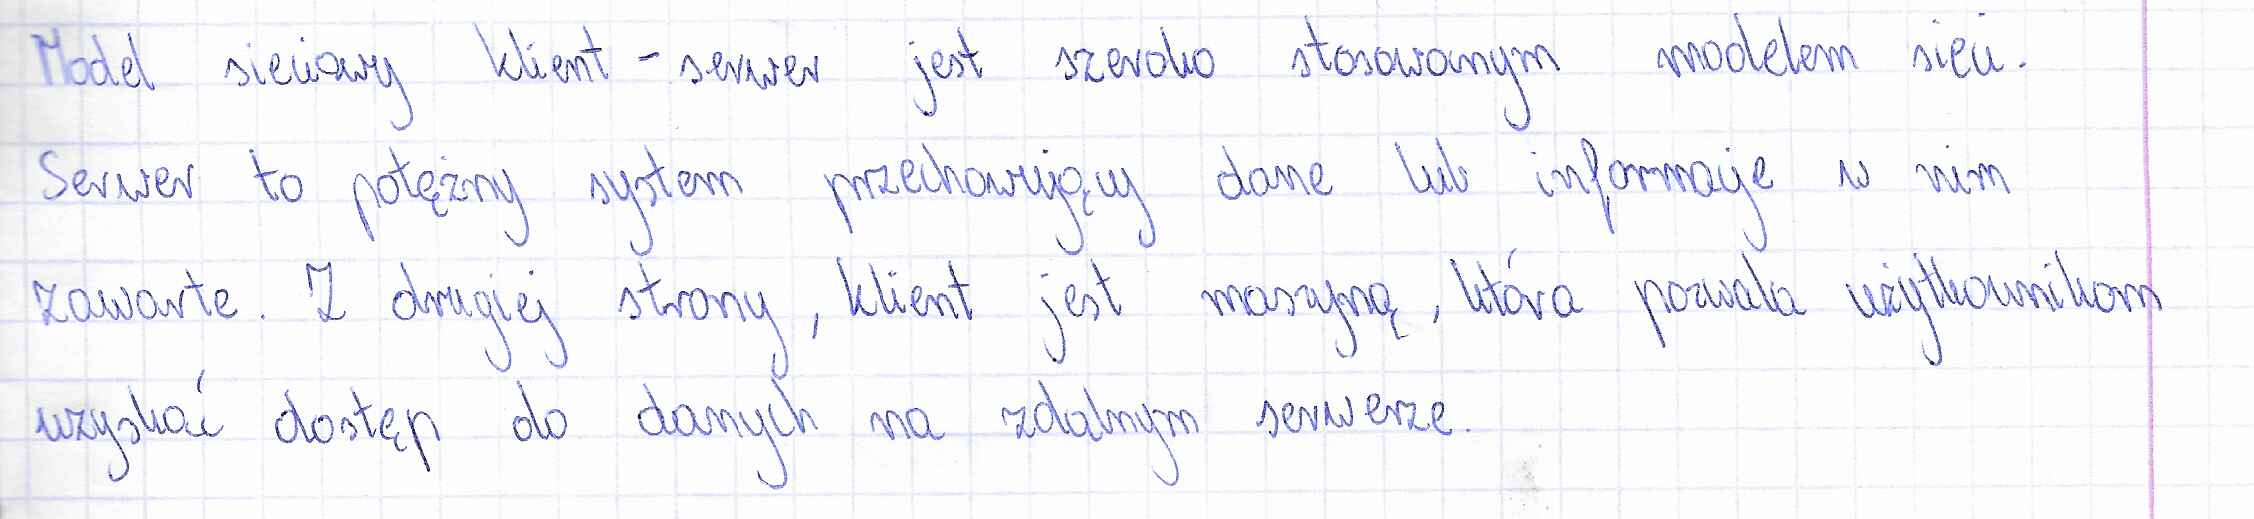 Model sieciowy klient - serwer jest szeroko stosowanym modelem sieci.
Serwer to potężny system przechowujący dane lub informacje w nim
zawarte. Z drugiej strony, klient jest maszyną, która pozwala użytkownikom
uzyskać dostęp do danych na zdalnym serwerze.